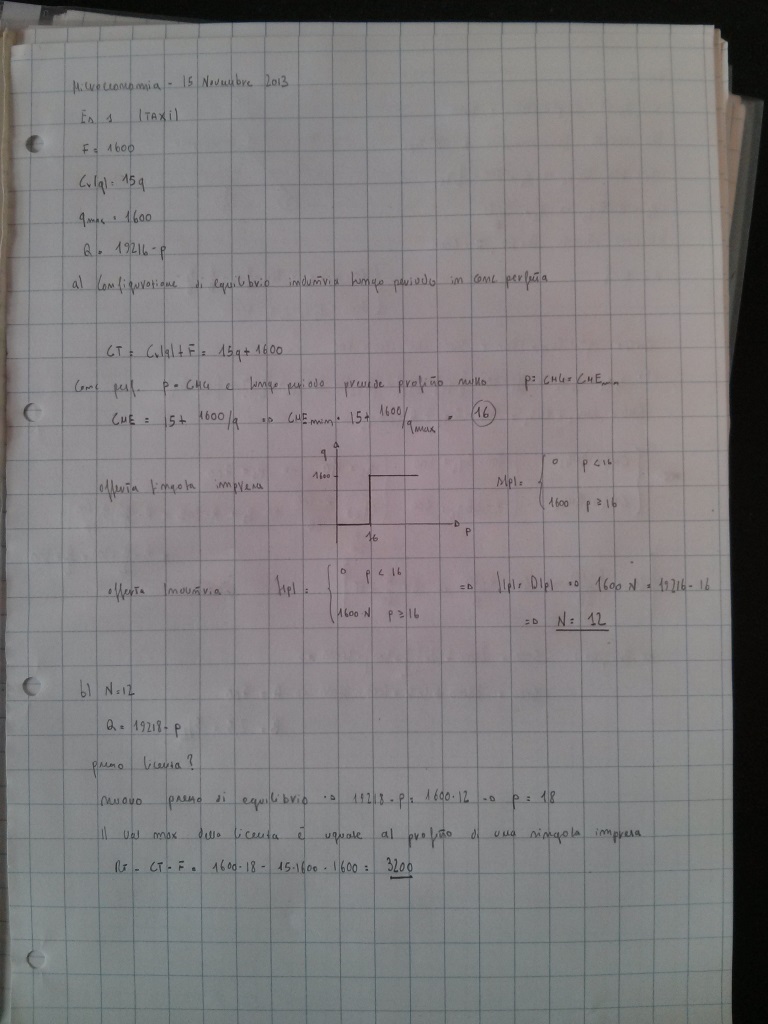 Microeconomia - 15 Novembre 2013
Es 1 (TAXI)
F = 1600
Cv(q) = 15q
qmax = 1600
Q = 19216 - p
a) Configurazione di equilibrio industria lungo periodo in conc perfetta
CT = Cv(q) + F = 15q + 1600
Conc perf. p = CMG e lungo periodo prevede profitto nullo p = CMG = CMEmin
CME = 15 + 1600/q => CMEmin = 15 + 1600/qmax = 16
q
1600
offerta singola impresa
16
p
s(p) = { 0 p < 16
1600 p ≥ 16
offerta Industria S(p) = { 0 p < 16
1600 N p ≥ 16
=> S(p) = D(p) => 1600 N = 19216 - 16
=> N = 12
b) N = 12
Q = 19218 - p
prezzo licenza?
nuovo prezzo di equilibrio -> 19218 - p = 1600·12 -> p = 18
Il val max della licenza è uguale al profitto di una singola impresa
- CT - F = 1600·18 - 15·1600 - 1600 = 3200